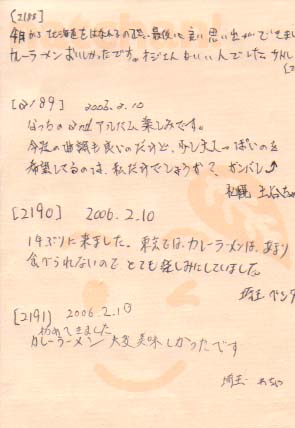 [2188]
今月から北海道をはなれるので、最後に良い思い出ができまし
カレーラーメンおいしかったです。オジさんもいい人でした。
[2189] 2006.2.10
なっちの2ndアルバム楽しみです。
今度の曲調も良いのだけど、少し
希望してるのは、私だけでしょうか? ガンバレ↗
札幌
[2190] 2006.2.10
1年ぶりに来ました。東京では、カレーラーメンは、あまり
食べられないので とても楽しみにしていました。
埼玉
[2191] 2006.2.10
カレーラーメン 大変美味しかったです
埼玉